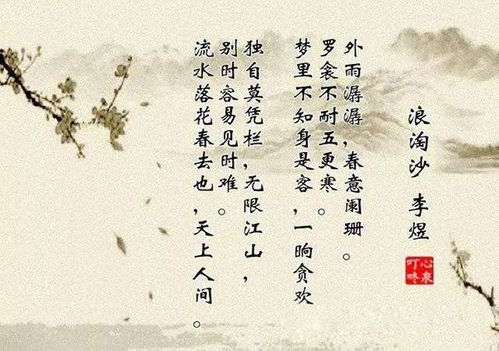 浪淘沙 李煜
心泉
叮咚
外雨潺潺，春意阑珊。
罗衾不耐五更寒。
梦里不知身是客，一晌贪欢
独自莫凭栏，无限江山，
别时容易见时难。
流水落花春去也，天上人间。